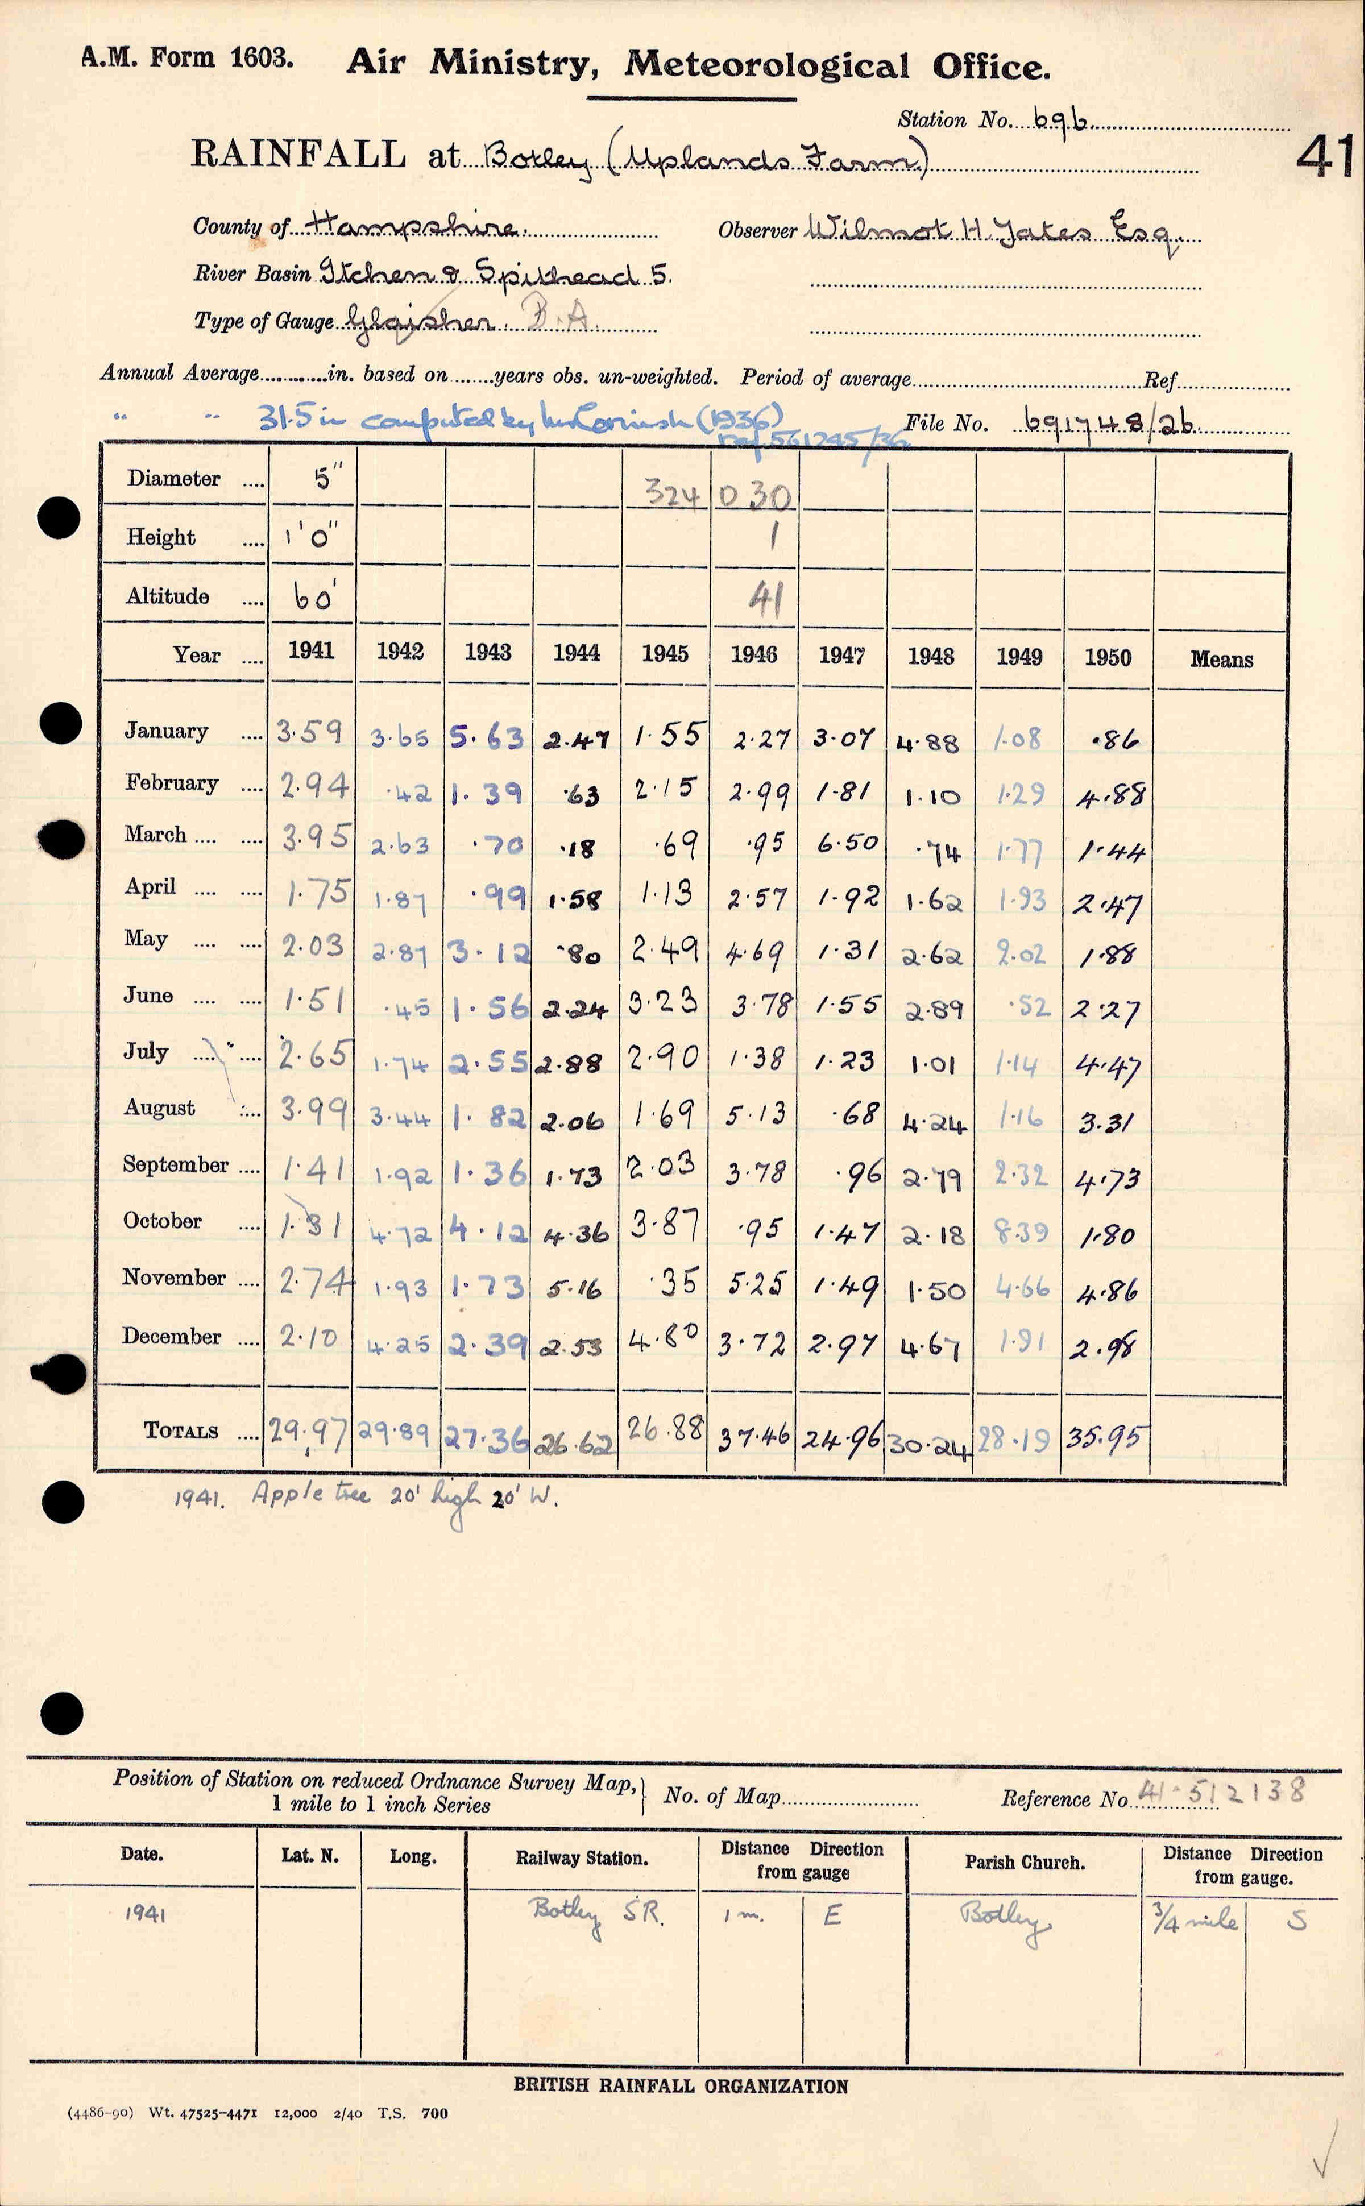 A.M. Form 1603. Air Ministry, Meteorological Office.
Station No. 696
RAINFALL at Botley (Uplands Farm)
41
County of Hampshire. Observer Wilmot H. Yates Esq.
River Basin Itchen & Spithead 5.
Type of Gauge Glaisher. B.A.
Annual Average............in. based on........years obs. un-weighted. Period of average............Ref............
" " 31.5 in computed by (1936)
ref 561245/36
File No. 691748/26
Diameter .... 5" 324 030
Height .... 1'0" 1
Altitude .... 60' 41
Year .... 1941 1942 1943 1944 1945 1946 1947 1948 1949 1950 Means
January .... 3.59 3.65 5.63 2.47 1.55 2.27 3.07 4.88 1.08 .86
February .... 2.94 .42 1.39 .63 2.15 2.99 1.81 1.10 1.29 4.88
March .... .... 3.95 2.63 .70 .18 .69 .95 6.50 .74 1.77 1.44
April .... .... 1.75 1.87 .99 1.58 1.13 2.57 1.92 1.62 1.93 2.47
May .... .... 2.03 2.87 3.12 .80 2.49 4.69 1.31 2.62 2.02 1.88
June .... .... 1.51 .45 1.56 2.24 3.23 3.78 1.55 2.89 .52 2.27
July .... .... 2.65 1.74 2.55 2.88 2.90 1.38 1.23 1.01 1.14 4.47
August .... 3.99 3.44 1.82 2.06 1.69 5.13 .68 4.24 1.16 3.31
September .... 1.41 1.92 1.36 1.73 2.03 3.78 .96 2.79 2.32 4.73
October .... 1.31 4.72 4.12 4.36 3.87 .95 1.47 2.18 8.39 1.80
November .... 2.74 1.93 1.73 5.16 .35 5.25 1.49 1.50 4.66 4.86
December .... 2.10 4.25 2.39 2.53 4.80 3.72 2.97 4.67 1.91 2.98
TOTALS .... 29.97 29.89 27.36 26.62 26.88 37.46 24.96 30.24 28.19 35.95
1941. Apple tree 20' high 20' W.
Position of Station on reduced Ordnance Survey Map,
1 mile to 1 inch Series
No. of Map............ Reference No. 41.512138
Date. Lat. N. Long. Railway Station. Distance Direction from gauge Parish Church. Distance Direction from gauge.
1941 Botley S.R. 1 m. E Botley 3/4 mile S
BRITISH RAINFALL ORGANIZATION
(4486-90) Wt. 47525-4471 12,000 2/40 T.S. 700